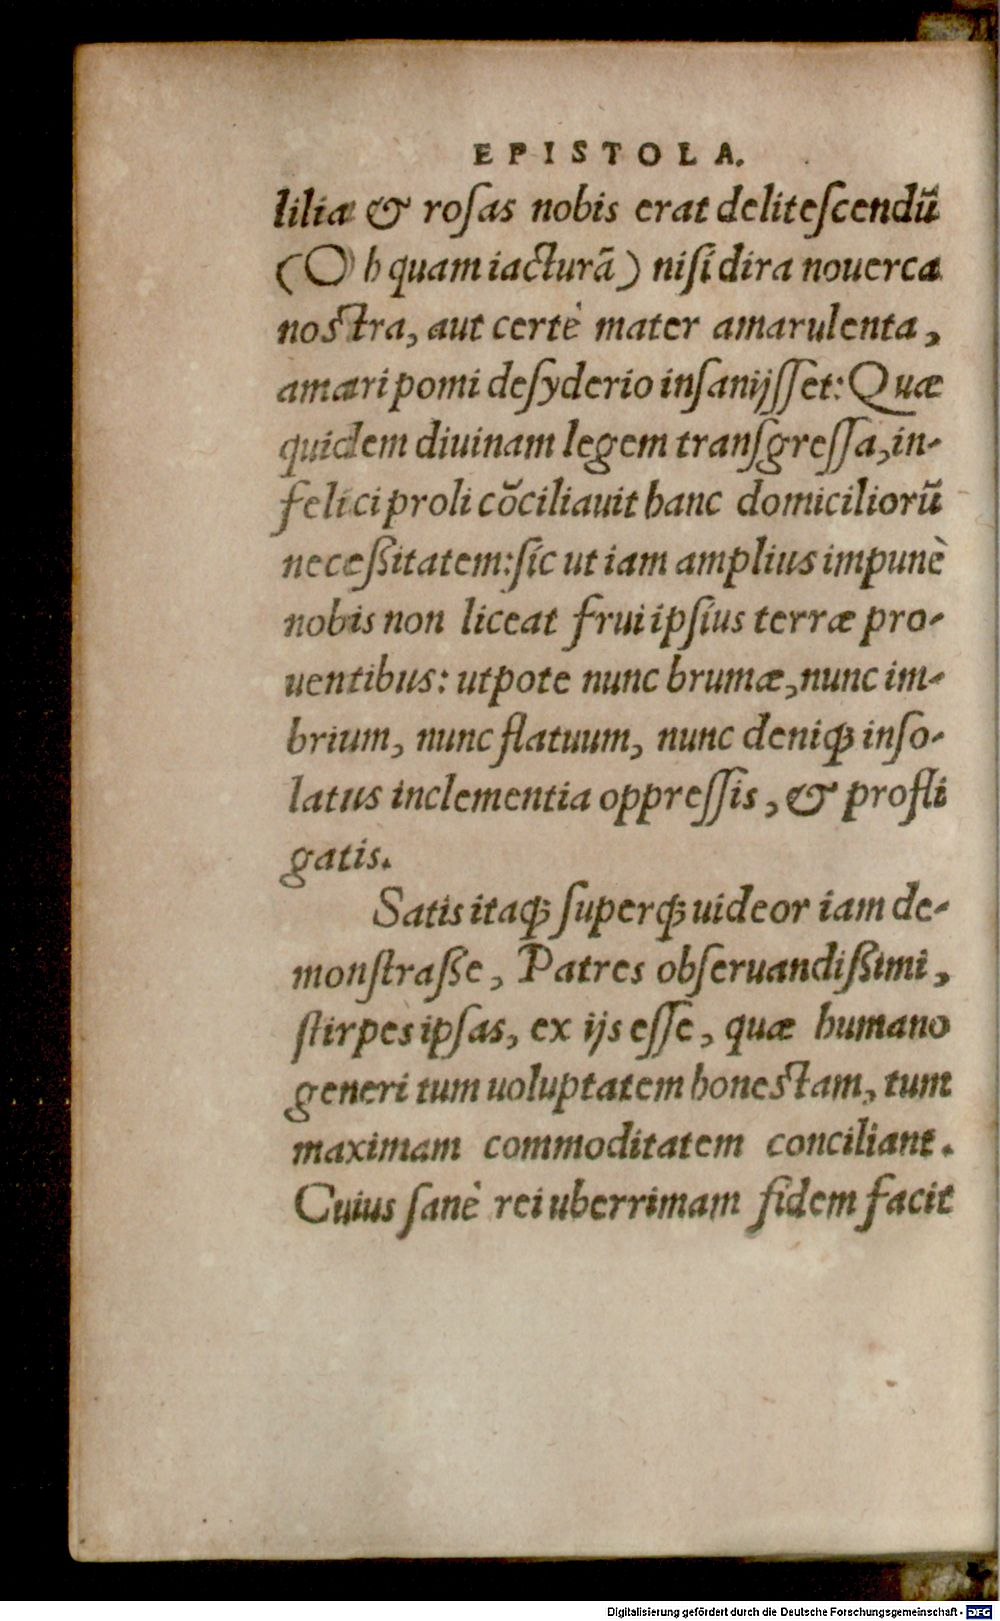 EPISTOLA.
lilia & roſas nobis erat deliteſcendũ
(Oh quam iacturã) niſi dira nouerca
noſtra, aut certè mater amarulenta,
amari pomi deſyderio inſanijſſet: Quæ
quidem diuinam legem tranſgreſſa, in-
felici proli cõciliauit hanc domiciliorũ
neceßitatem: ſic ut iam amplius impunè
nobis non liceat frui ipſius terræ pro-
uentibus: utpote nunc brumæ, nunc im-
brium, nunc flatuum, nunc deniqꝫ inſo-
latus inclementia oppreſſis, & profli
gatis.
Satis itaqꝫ ſuperqꝫ uideor iam de-
monſtraße, Patres obſeruandißimi,
ſtirpes ipſas, ex ijs eſſe, quæ humano
generi tum uoluptatem honeſtam, tum
maximam commoditatem conciliant.
Cuius ſanè rei uberrimam fidem facit
Digitalisierung gefördert durch die Deutsche Forschungsgemeinschaft - DFG